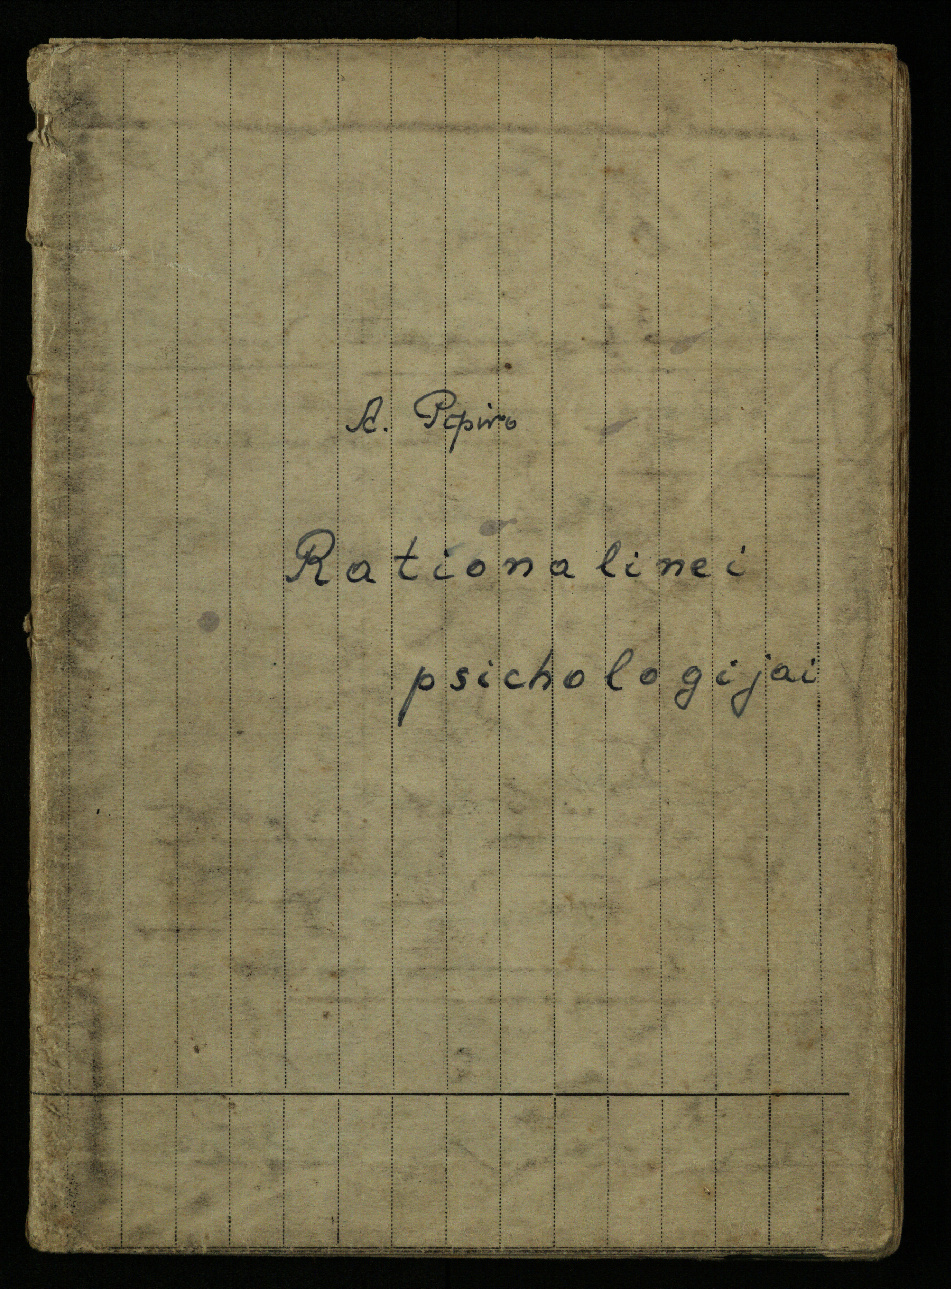 A. Papiro
Rationalinei
psichologijai